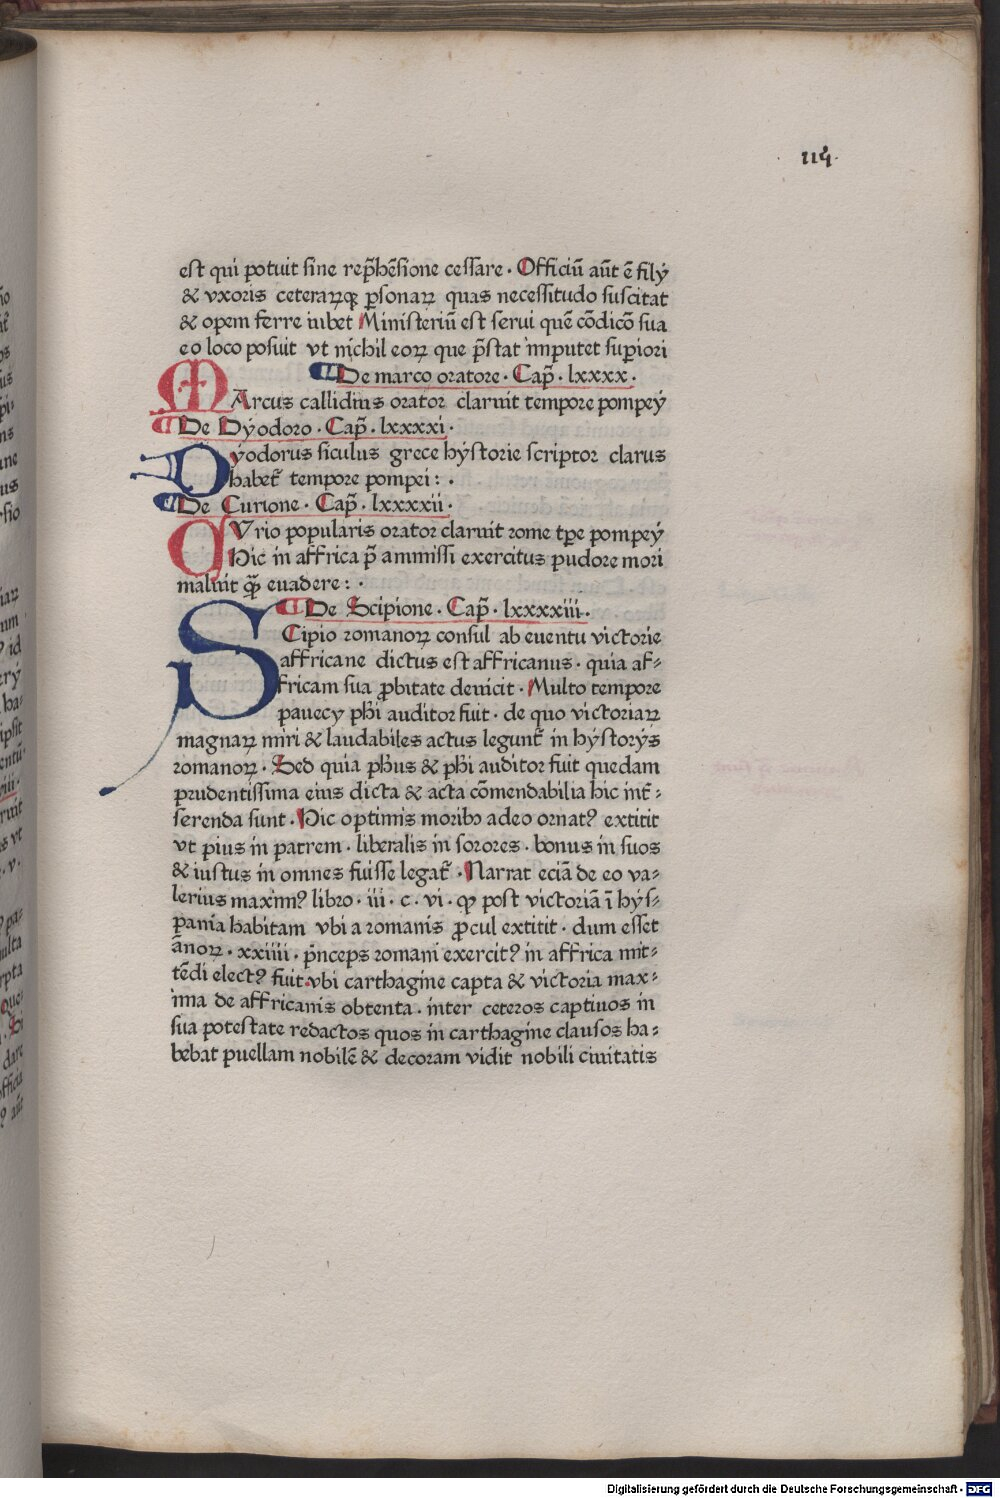 114.
est qui potuit sine rep̄hēsione cessare · Officiū aūt ē filÿ
& vxoris ceteraꝝqꝫ ꝑsonaꝝ quas necessitudo suscitat
& opem ferre iubet Ministeriū est serui quē cōdicō sua
eo loco posuit vt nichil eoꝝ que p̄stat imputet suꝑiori
¶De marco oratore · Cap̄ · lxxxx ·
MArcus callidius orator claruit tempore pompeÿ
¶De Dÿodoro · Cap̄ · lxxxxi ·
Dÿodorus siculus grece hÿstorie scriptor clarus
habet᷑ tempore pompei : ·
¶De Curione · Cap̄ · lxxxxii ·
CVrio popularis orator claruit rome tꝑe pompeÿ
Hic in affrica p̄ ammissi exercitus pudore mori
maluit qꝫ̄ euadere : ·
¶De Scipione · Cap̄ · lxxxxiii ·
SCipio romanoꝝ consul ab euentu victorie
affricane dictus est affricanus · quia af⸗
fricam sua ꝓbitate deuicit · Multo tempore
pauecy ph̄i auditor fuit · de quo victoriaꝝ
magnaꝝ miri & laudabiles actus legunt᷑ in hÿstorÿs
romanoꝝ · Sed quia ph̄us & ph̄i auditor fuit quedam
prudentissima eius dicta & acta cōmendabilia hic int᷑⸗
serenda sunt · Hic optimis moribꝫ adeo ornatꝰ extitit
vt pius in patrem · liberalis in sorores · bonus in suos
& iustus in omnes fuisse legat᷑ · Narrat eciā de eo va⸗
lerius maximꝰ libro · iii · c · vi · ꝙ post victoriā ī hÿs⸗
pania habitam vbi a romanis ꝓcul extitit · dum esset
ānoꝝ · xxiiii · p̄nceps romani exercitꝰ in affrica mit⸗
tēdi electꝰ fuit · vbi carthagine capta & victoria max⸗
ima de affricanis obtenta · inter ceteros captiuos in
sua potestate redactos quos in carthagine clausos ha⸗
bebat puellam nobilē & decoram vidit nobili ciuitatis
Digitalisierung gefördert durch die Deutsche Forschungsgemeinschaft - DFG